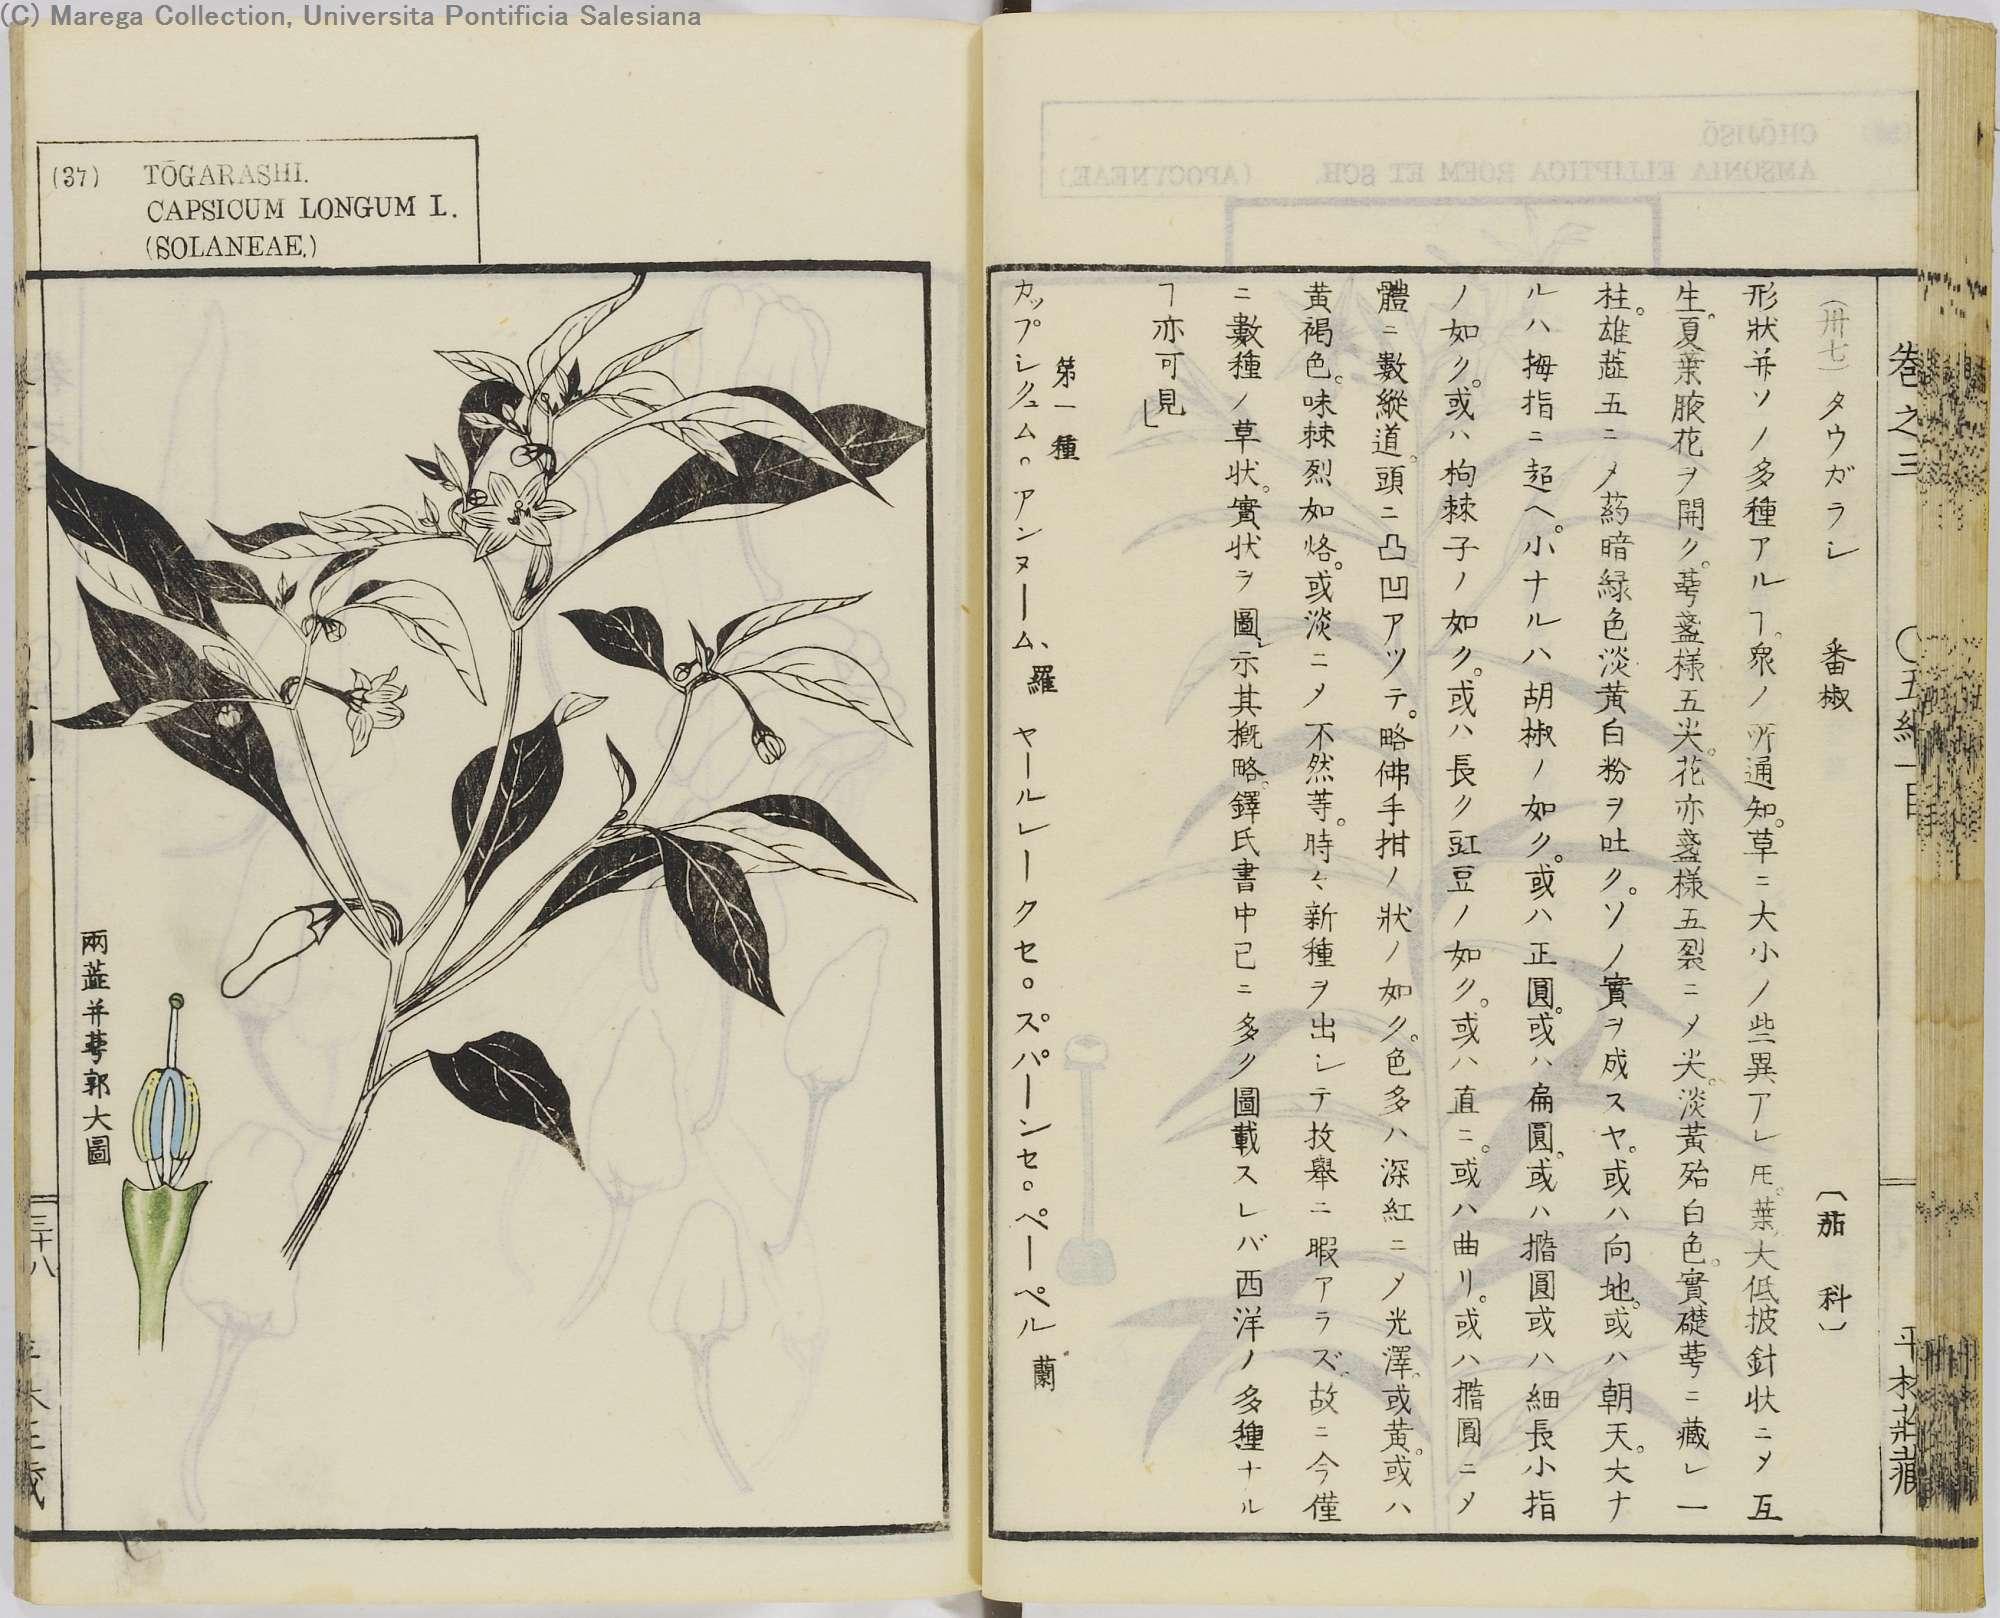 (C) Marega Collection, Universita Pontificia Salesiana
巻之三
〇五綱一目
平林荘藏
(卅七)タウガラシ 番椒 〔茄科〕
形狀并ソノ多種アルヿ。衆ノ所通知。草ニ大小ノ些異アレ𪜈。葉大低披針狀ニメ互
生。夏葉腋花ヲ開ク。萼盞様五尖。花亦盞様五裂ニメ尖。淡黄殆白色。實礎萼ニ藏レ一
柱。雄蕋五ニメ葯暗緑色淡黄白粉ヲ吐ク。ソノ實ヲ成スヤ。或ハ向地。或ハ朝天。大ナ
ルハ拇指ニ超ヘ。小ナルハ胡椒ノ如ク。或ハ正圓。或ハ扁圓。或ハ撱圓或ハ細長小指
ノ如ク。或ハ枸棘子ノ如ク。或ハ長ク豇豆ノ如ク。或ハ直ニ。或ハ曲リ。或ハ撱圓ニメ
體ニ數縱道。頭ニ凸凹アツテ。略佛手柑ノ狀ノ如ク。色多ハ深紅ニメ光澤。或黄。或ハ
黄褐色。味棘烈如烙。或淡ニメ不然等。時々新種ヲ出シテ枚舉ニ暇アラズ。故ニ今僅
ニ數種ノ草状。實状ヲ圖シ示其概略。鐸氏書中已ニ多ク圖載スレバ西洋ノ多種ナル
ヿ亦可見」
第一種
カップシクュム。アンヌーム、羅 ヤールレークセ。スパーンセ。ペーペル 蘭
(37) TŌGARASHI.
CAPSICUM LONGUM L.
(SOLANEAE.)
兩蕋并萼郭大圖
三十八